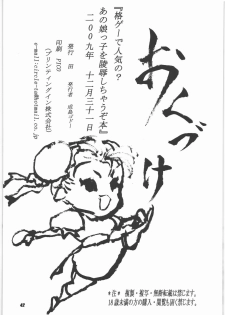 おくづけ
『格ゲーで人気の?
あの娘っ子を陵辱しちゃうぞ本』
二000九年 十二月三十一日
発行 田 発行者 成島ゴドー
印刷 PICO
(プリンティングイン株式会社)
*注* 複製・複写・無断転載は禁じます。
18歳未満の方の購入・閲覧も固く禁じます。
42